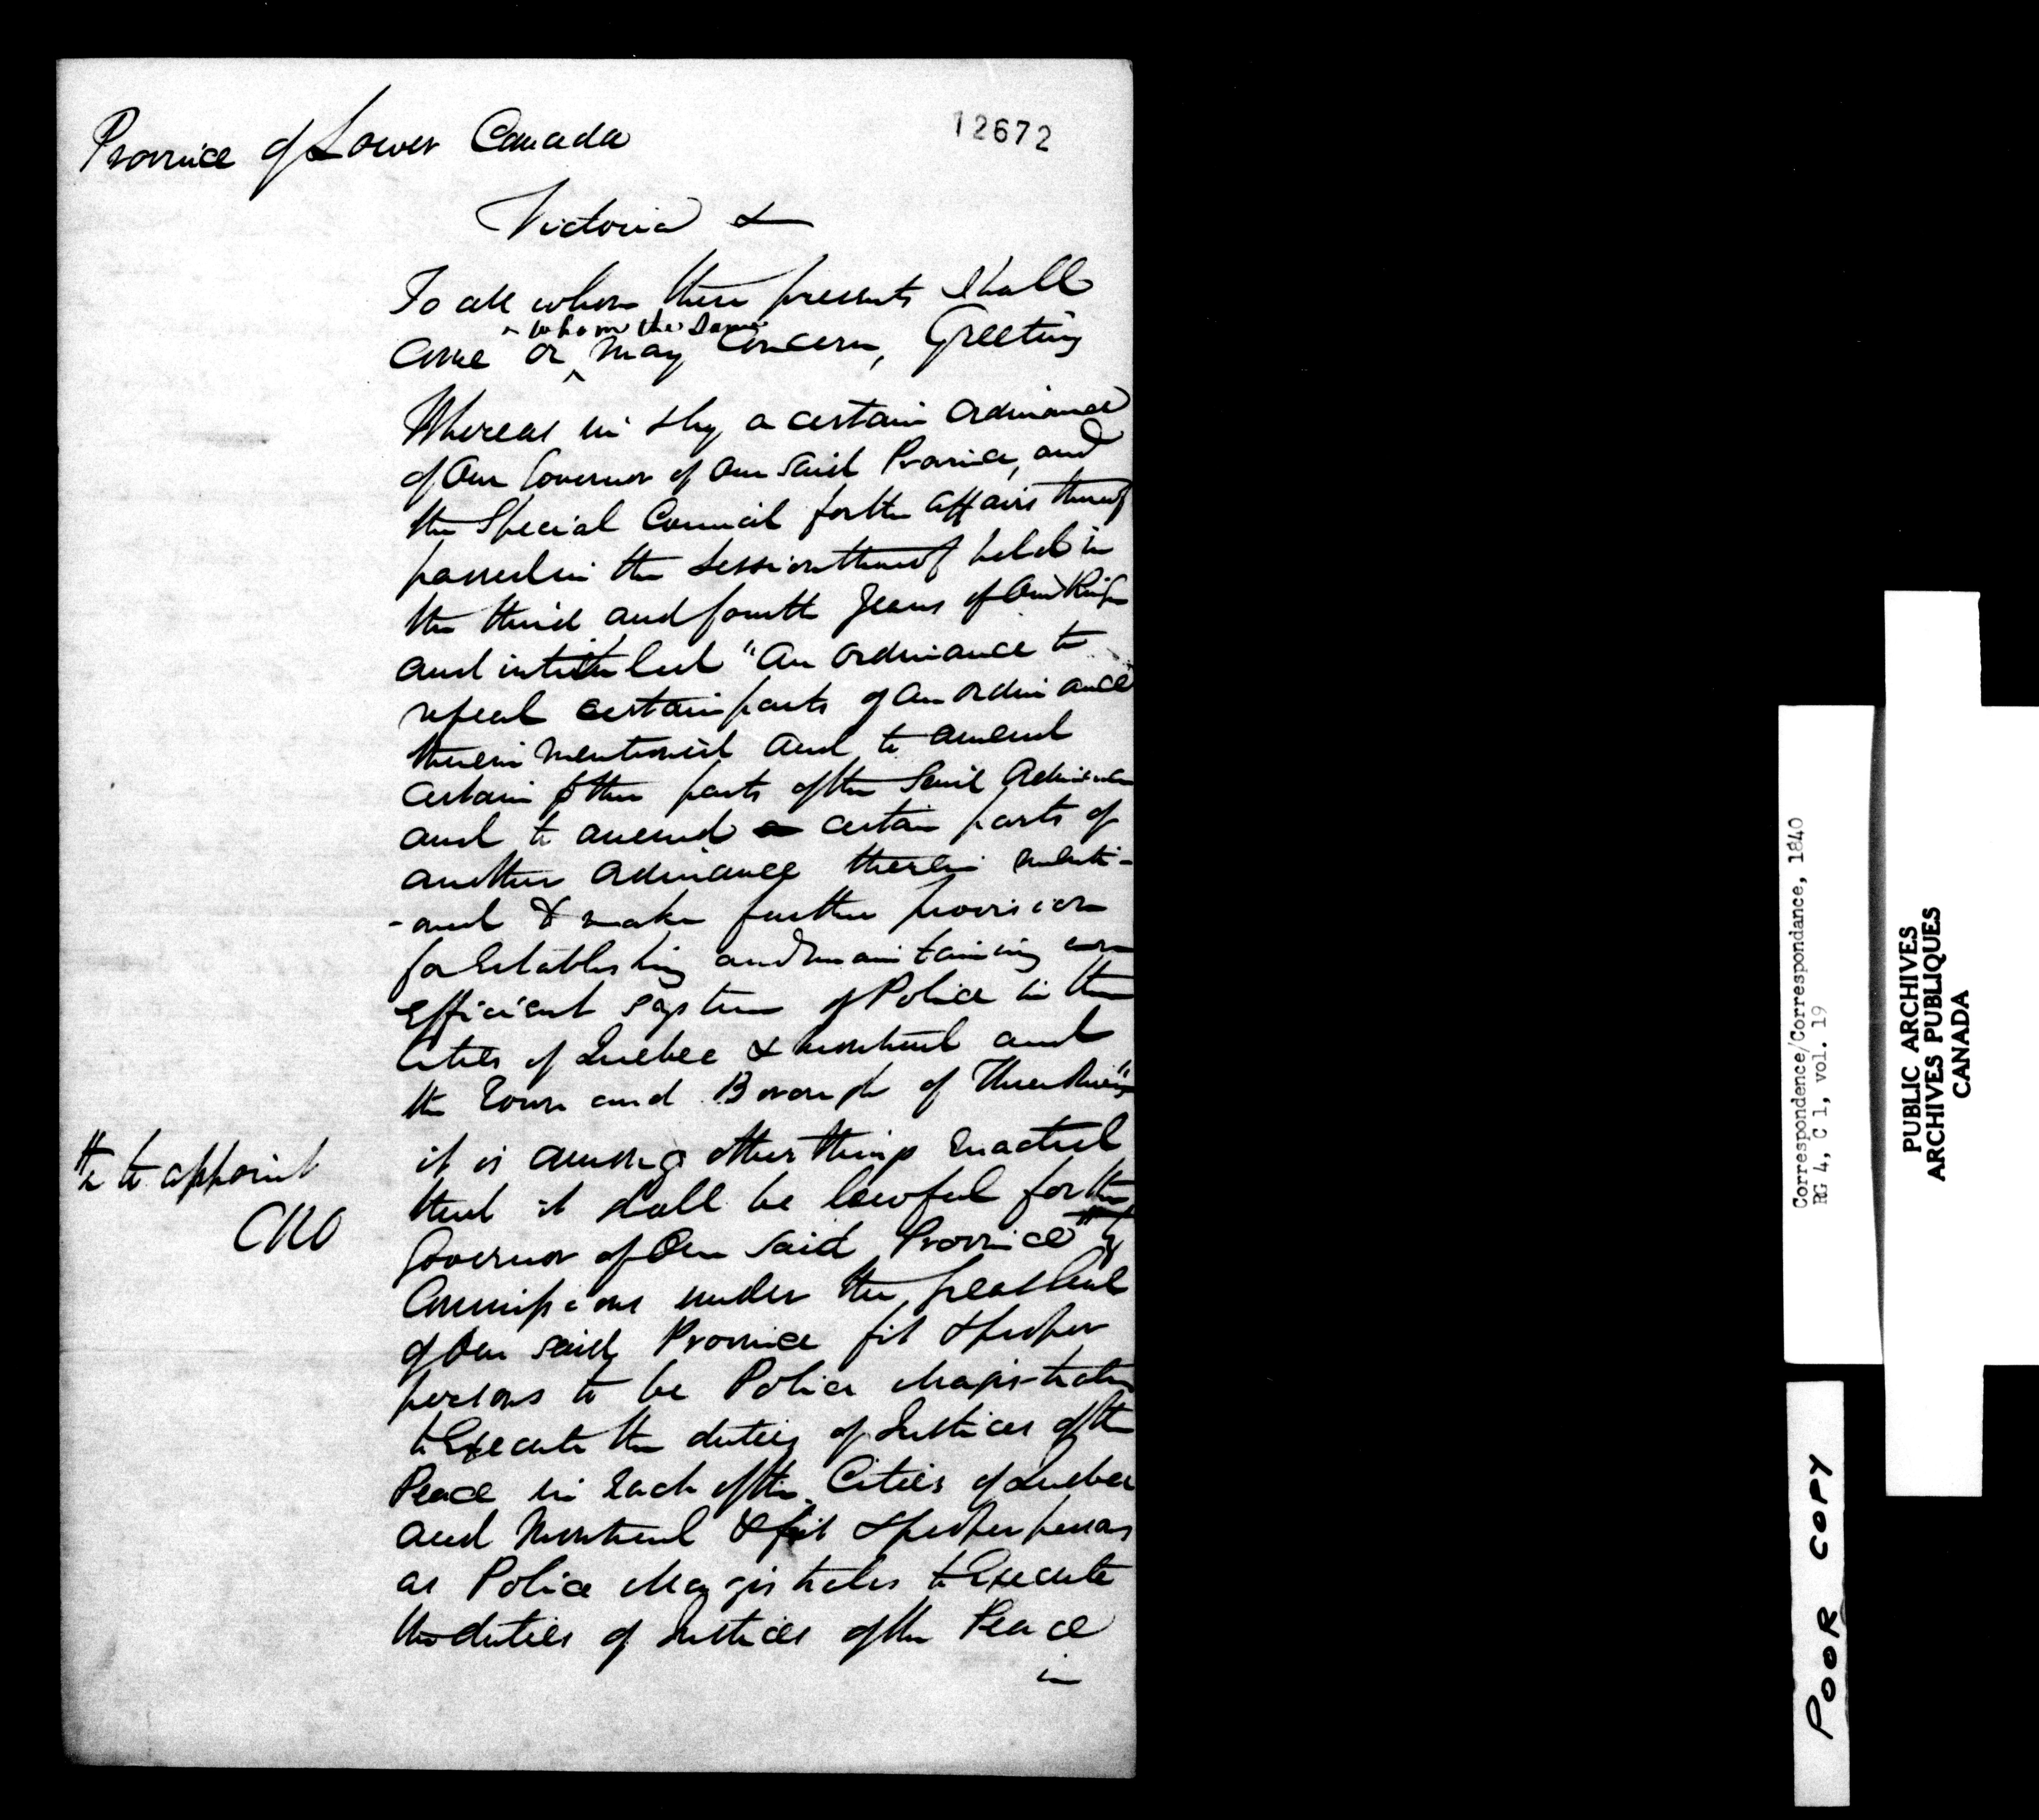 12672
Province of Lower Canada
Victoria &
To all whom these presents shall
whom the same
come or may Concern, Greeting
Whereas in & by a certain Ordinance
of Our Governor of Our Said Province, and
the Special Council for the affairs thereof
passed in the Session thereof held in
the third and fourth Years of Our Reign
and intituled "An Ordinance to
repeal certain parts of an Ordinance
therein mentioned and to amend
certain other parts of the Said Ordinance
and to amend certain parts of
another Ordinance therein menti-
-oned & make further provision
for Establishing and maintaining an
efficient system of Police in the
Cities of Quebec & Montreal and
the Town and Borough of Three Rivers"
it is among other things Enacted
that it shall be lawful for the
Governor of Our Said Province "by
Commissions under the Great Seal
of Our said Province fit & proper
persons to be Police Magistrates
to Execute the duties of Justices of the
Peace in Each of the Cities of Quebec
and Montreal & fit & proper persons
as Police Magistrates to Execute
the duties of Justices of the Peace
in
to appoint
Correspondence/Correspondance, 1840
RG 4, C 1, vol. 19
PUBLIC ARCHIVES
ARCHIVES PUBLIQUES
CANADA
POOR COPY